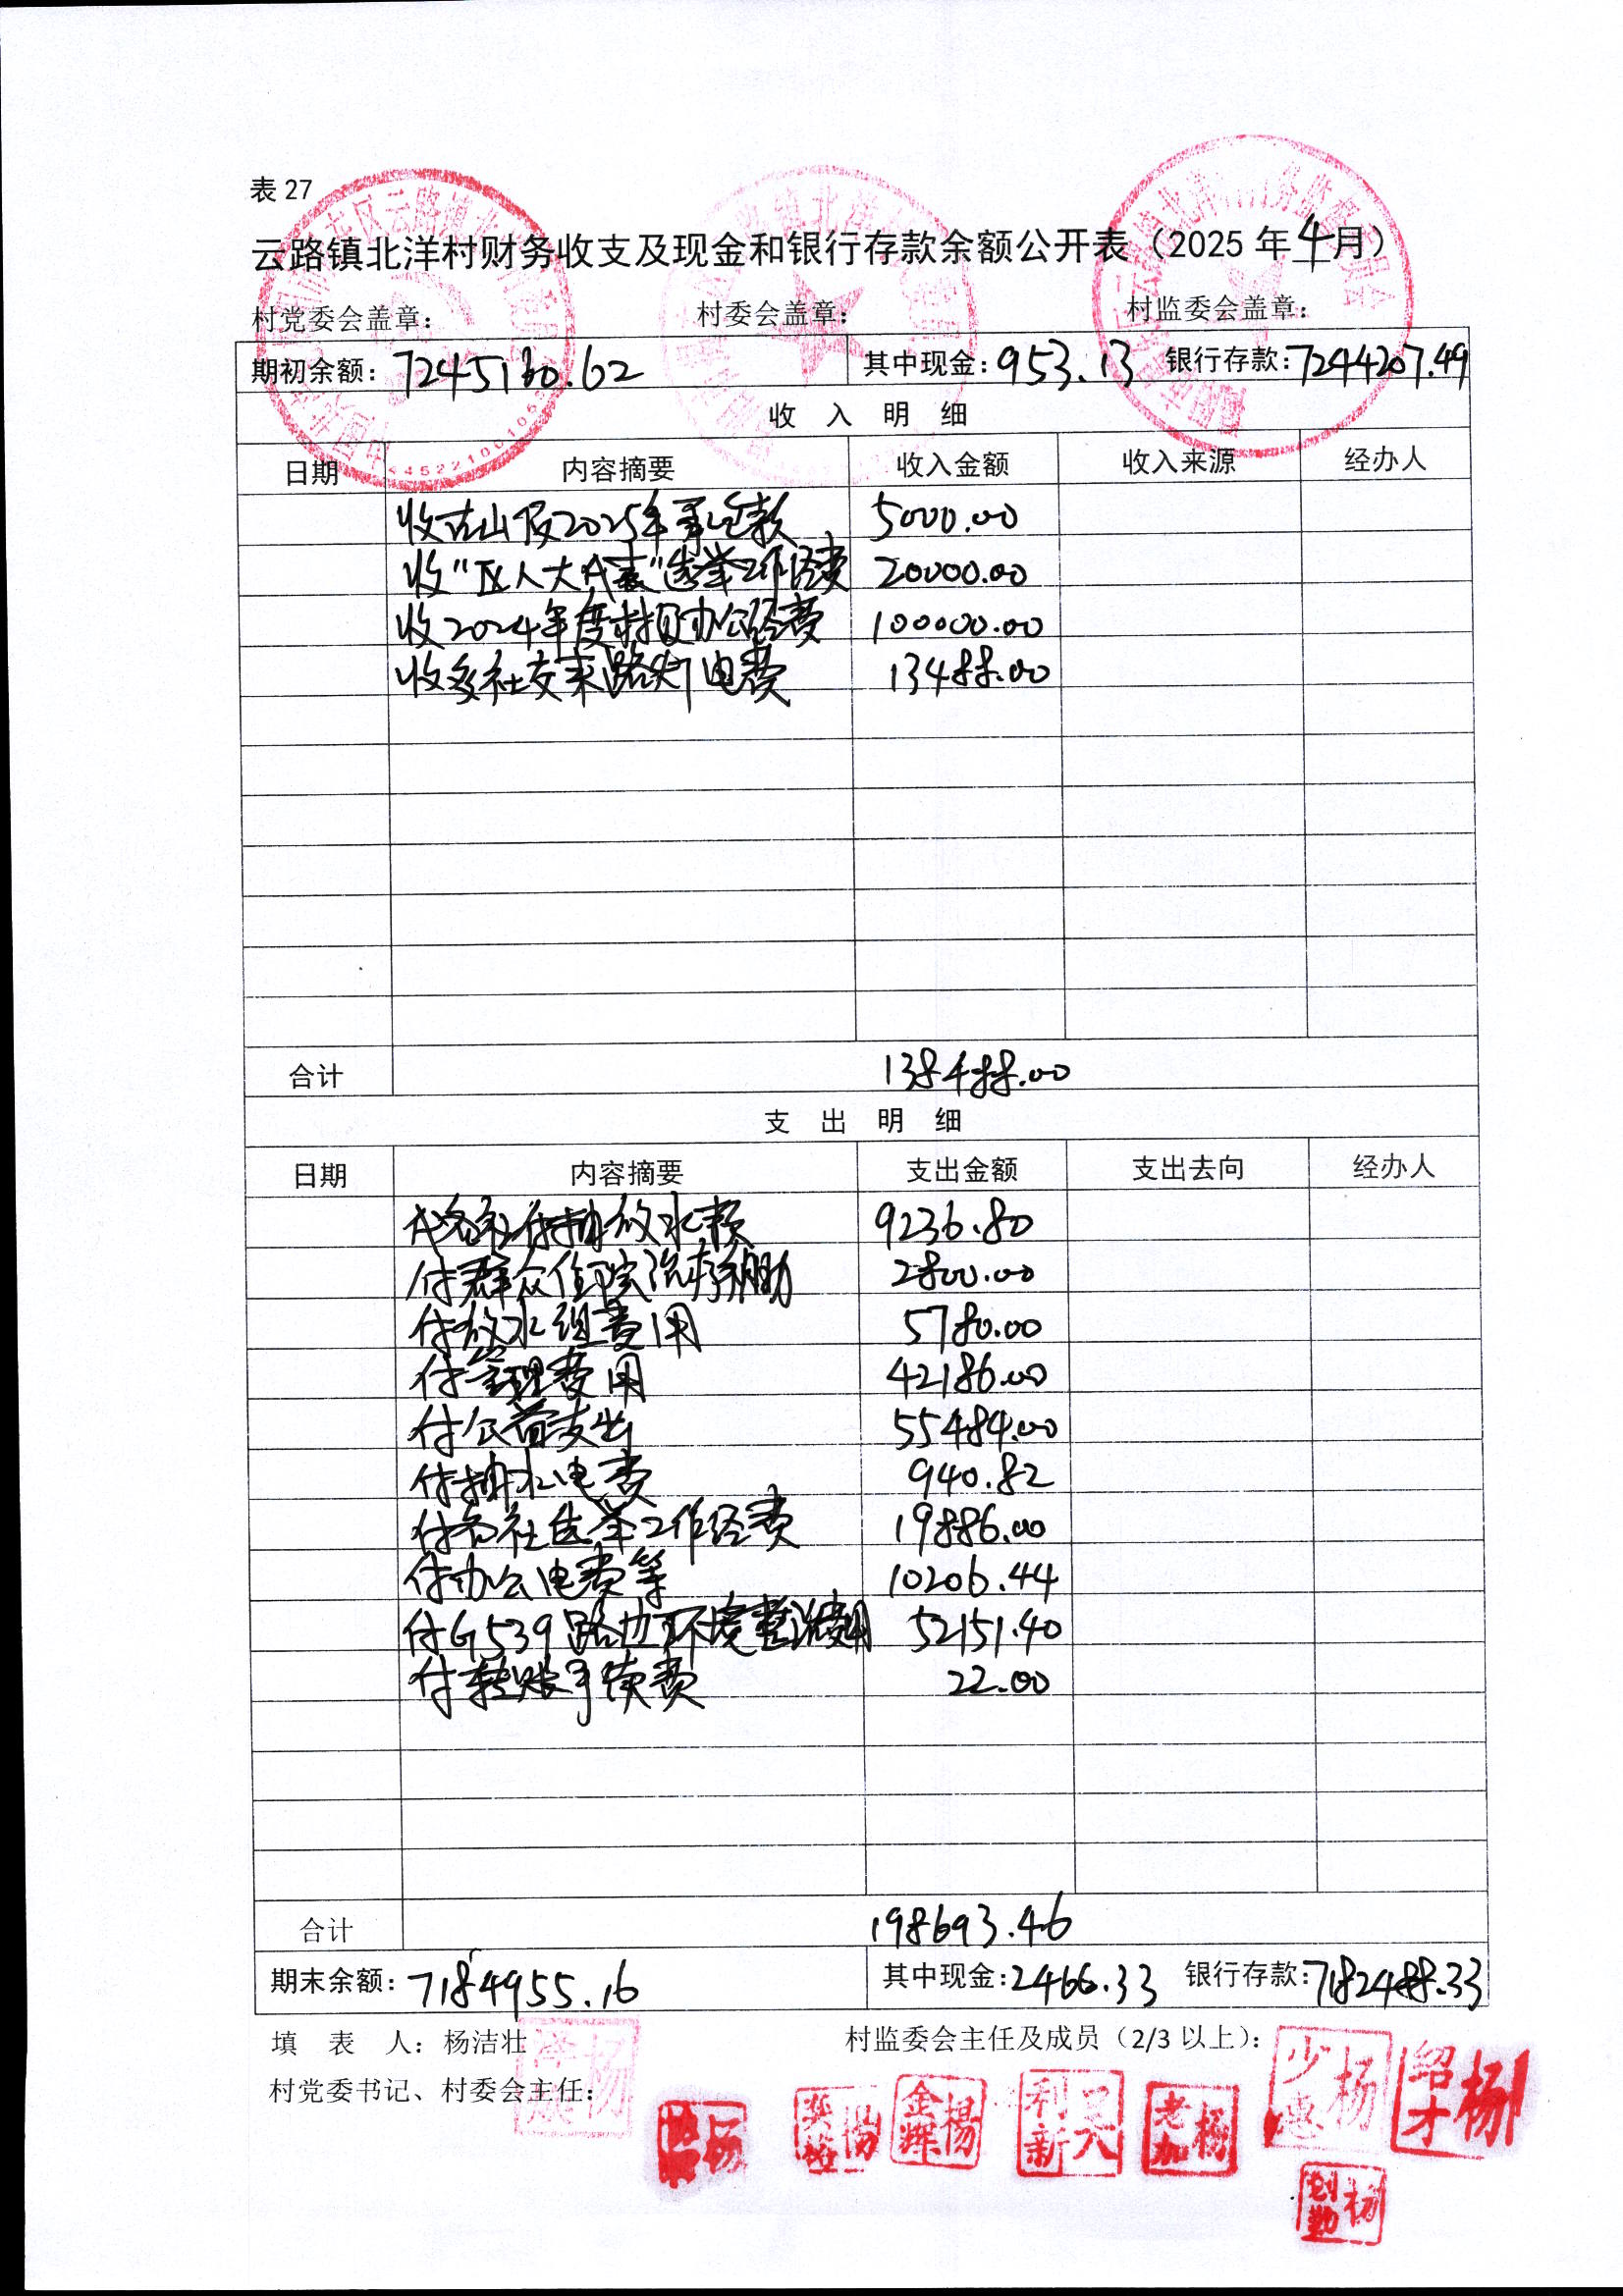 表 27
云路镇北洋村财务收支及现金和银行存款余额公开表（2025 年4月）
村党委会盖章： 村委会盖章： 村监委会盖章：
期初余额：7245160.62 其中现金：953.13 银行存款：7244207.49
收 入 明 细
日期 内容摘要 收入金额 收入来源 经办人
收古山 2025年承包款 5000.00
收"区人大代表"选举工作经费 20000.00
收2024年度村级办公经费 100000.00
收各社交来路灯电费 13488.00
合计 138488.00
支 出 明 细
日期 内容摘要 支出金额 支出去向 经办人
代各社付抽放水款 9236.80
付群众住院治疗补助 2800.00
付放水组费用 5780.00
付管理费用 42186.00
付公益支出 55484.00
付抽水电费 940.82
付各社选举工作经费 19886.00
付办公电费等 10206.44
付G539路边环境整治费用 52151.40
付转账手续费 22.00
合计 198693.46
期末余额：7184955.16 其中现金：2466.33 银行存款：7182488.33
填 表 人：杨洁壮 村监委会主任及成员（2/3 以上）：
村党委书记、村委会主任：
杨
金辉 楊
利新 吴
老加 杨
少惠 杨
绍才 杨
创勤 杨